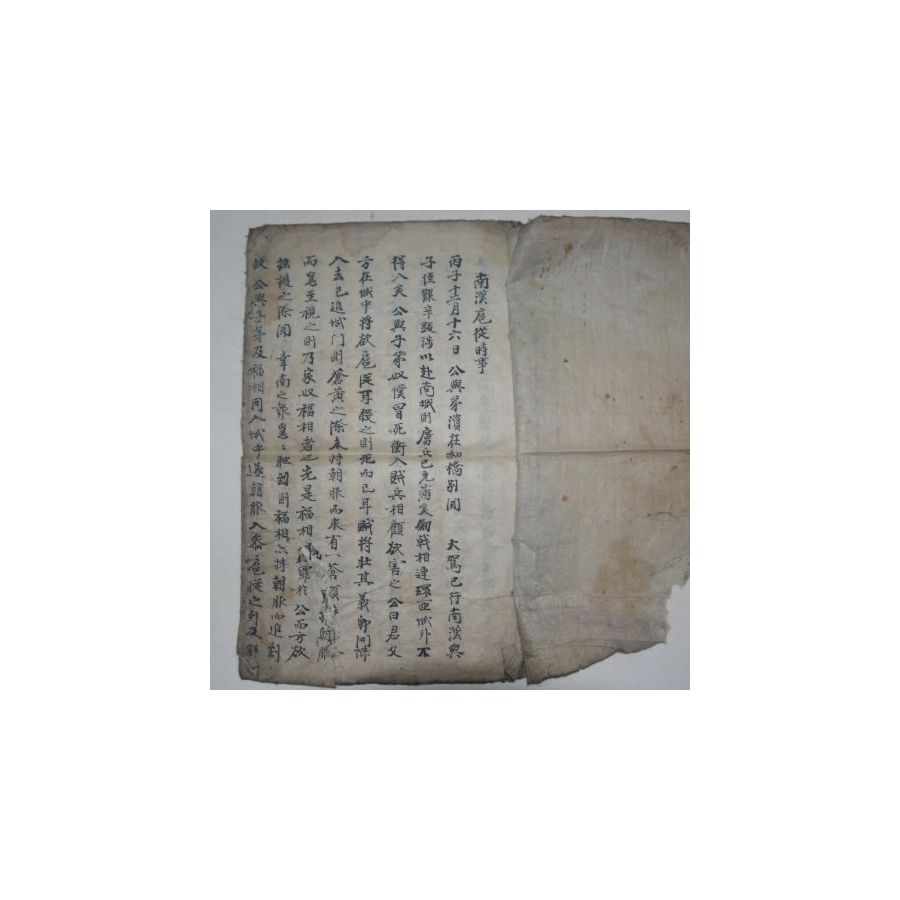 南漢扈從時事
丙子十二月十六日 公與弟濱在橋別聞 大駕已行南漢與
子侄艱辛跋涉以赴南城則虜兵已充滿矣劒戟相連環匝城外不
得入矣 公與子弟奴僕冒死衝入賊兵相顧欲害之 公曰君父
方在城中將欲扈從耳殺之則死而已耳賊將壯其義即開陣
入去已進城门則蒼黃之際未持朝服而來有一蒼頭朝服
而急至視之則乃家奴福相者也先是福相罪於 公而方欲
之際聞 幸南之報急〻馳到則福相亦持朝服而追到
故 公與子弟及福相同入城中遂朝服入參扈從之列及